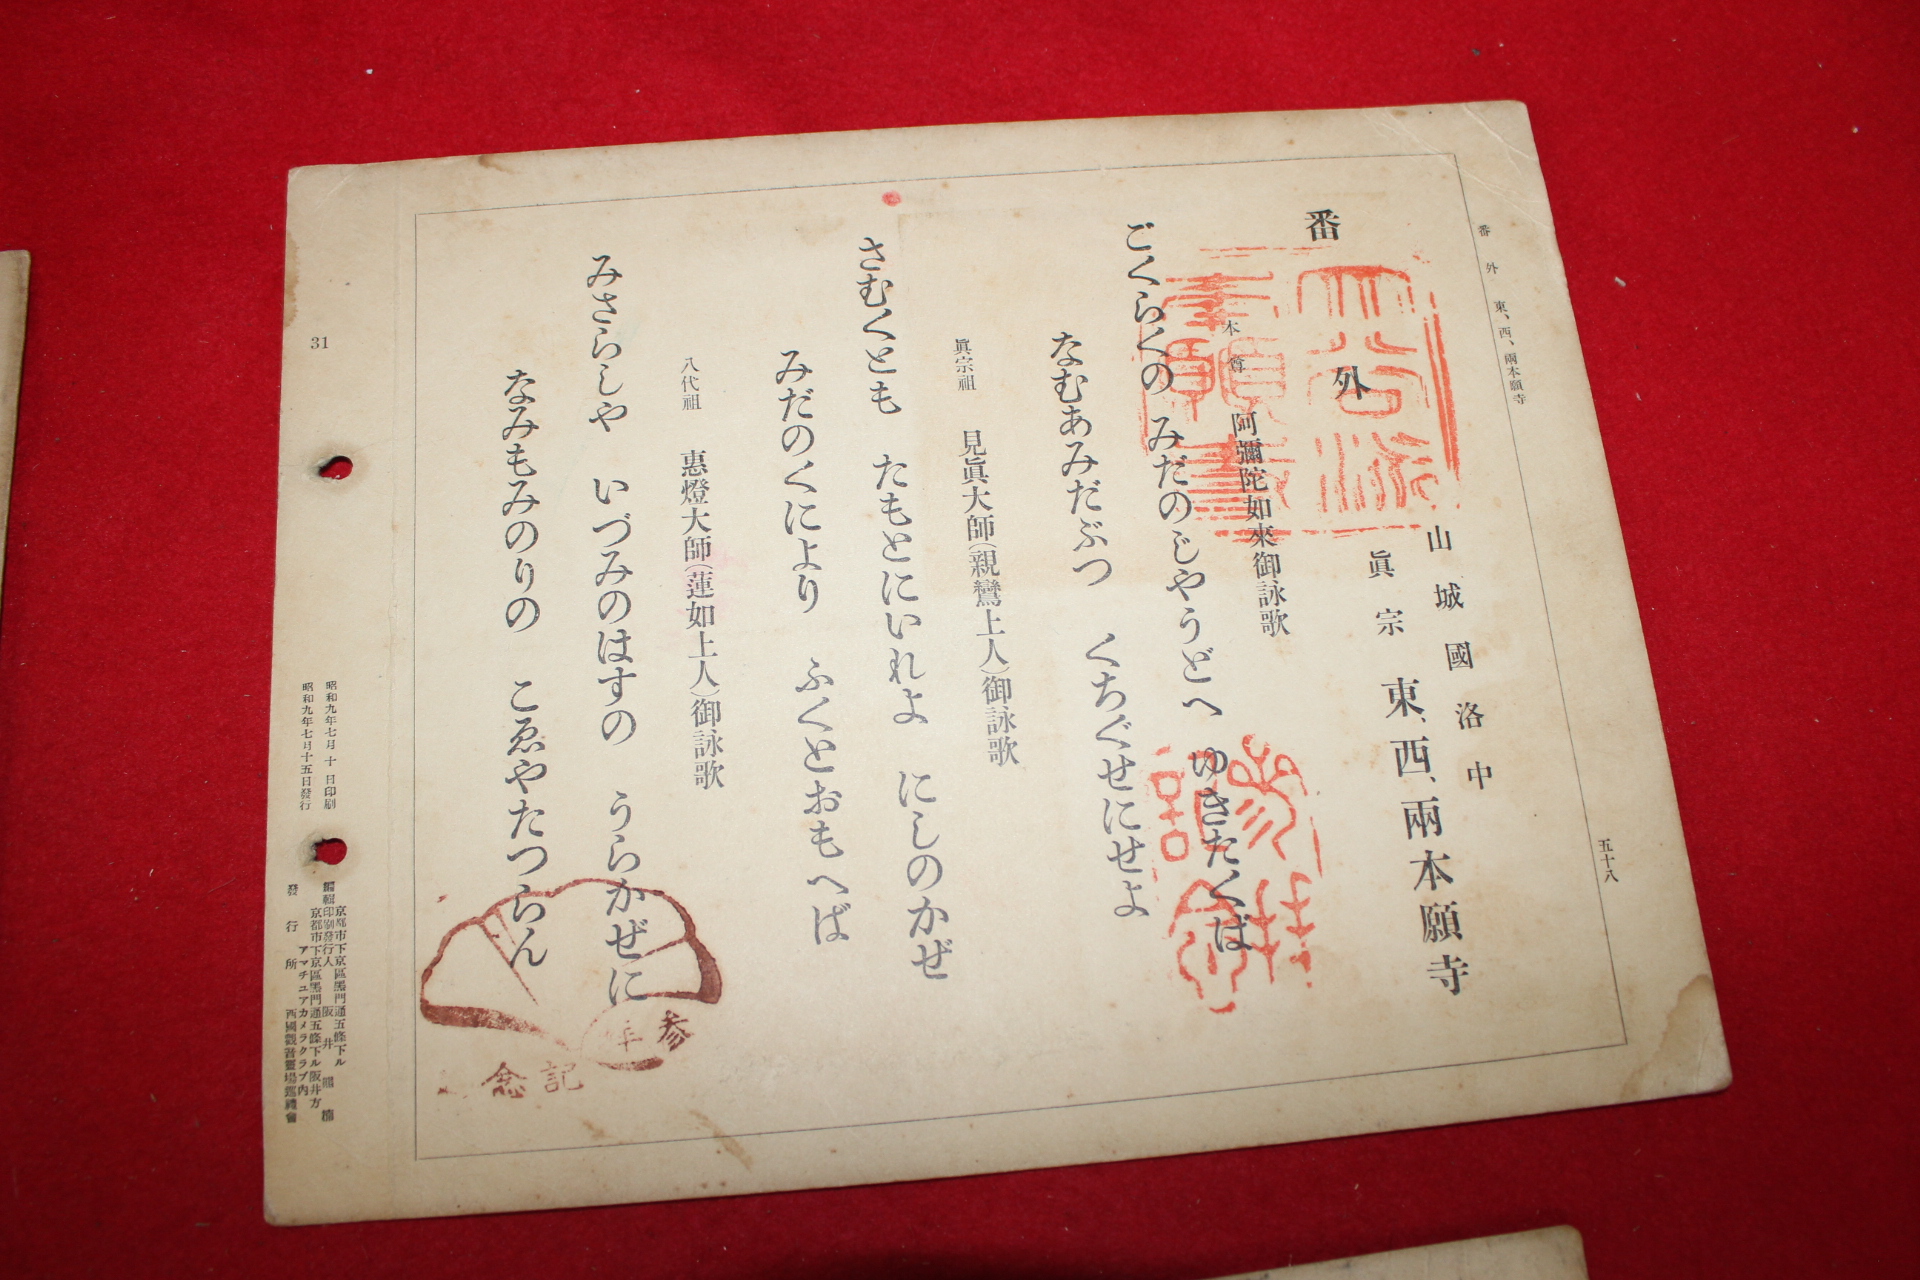 番外 東、西、兩本願寺
五十八
番外
山城國洛中
眞宗 東、西、兩本願寺
本尊 阿彌陀如來御詠歌
ごくらくの みだのじやうどへ ゆきたくば
なむあみだぶつ くちぐせにせよ
眞宗祖 見眞大師(親鸞上人)御詠歌
さむくとも たもとにいれよ にしのかぜ
みだのくにより ふくとおもへば
八代祖 惠燈大師(蓮如上人)御詠歌
みさらしや いづみのはすの うらかぜに
なみもみのりの こゑやたつらん
参拝
記念
参拝
記念
31
昭和九年七月十日印刷
昭和九年七月十五日發行
京都市下京區黑門通五條下ル
編輯印刷發行人 阪井
京都市下京區黑門通五條下ル阪井方
アマチユアカメラクラブ內
發行所 西國觀音靈場巡禮會